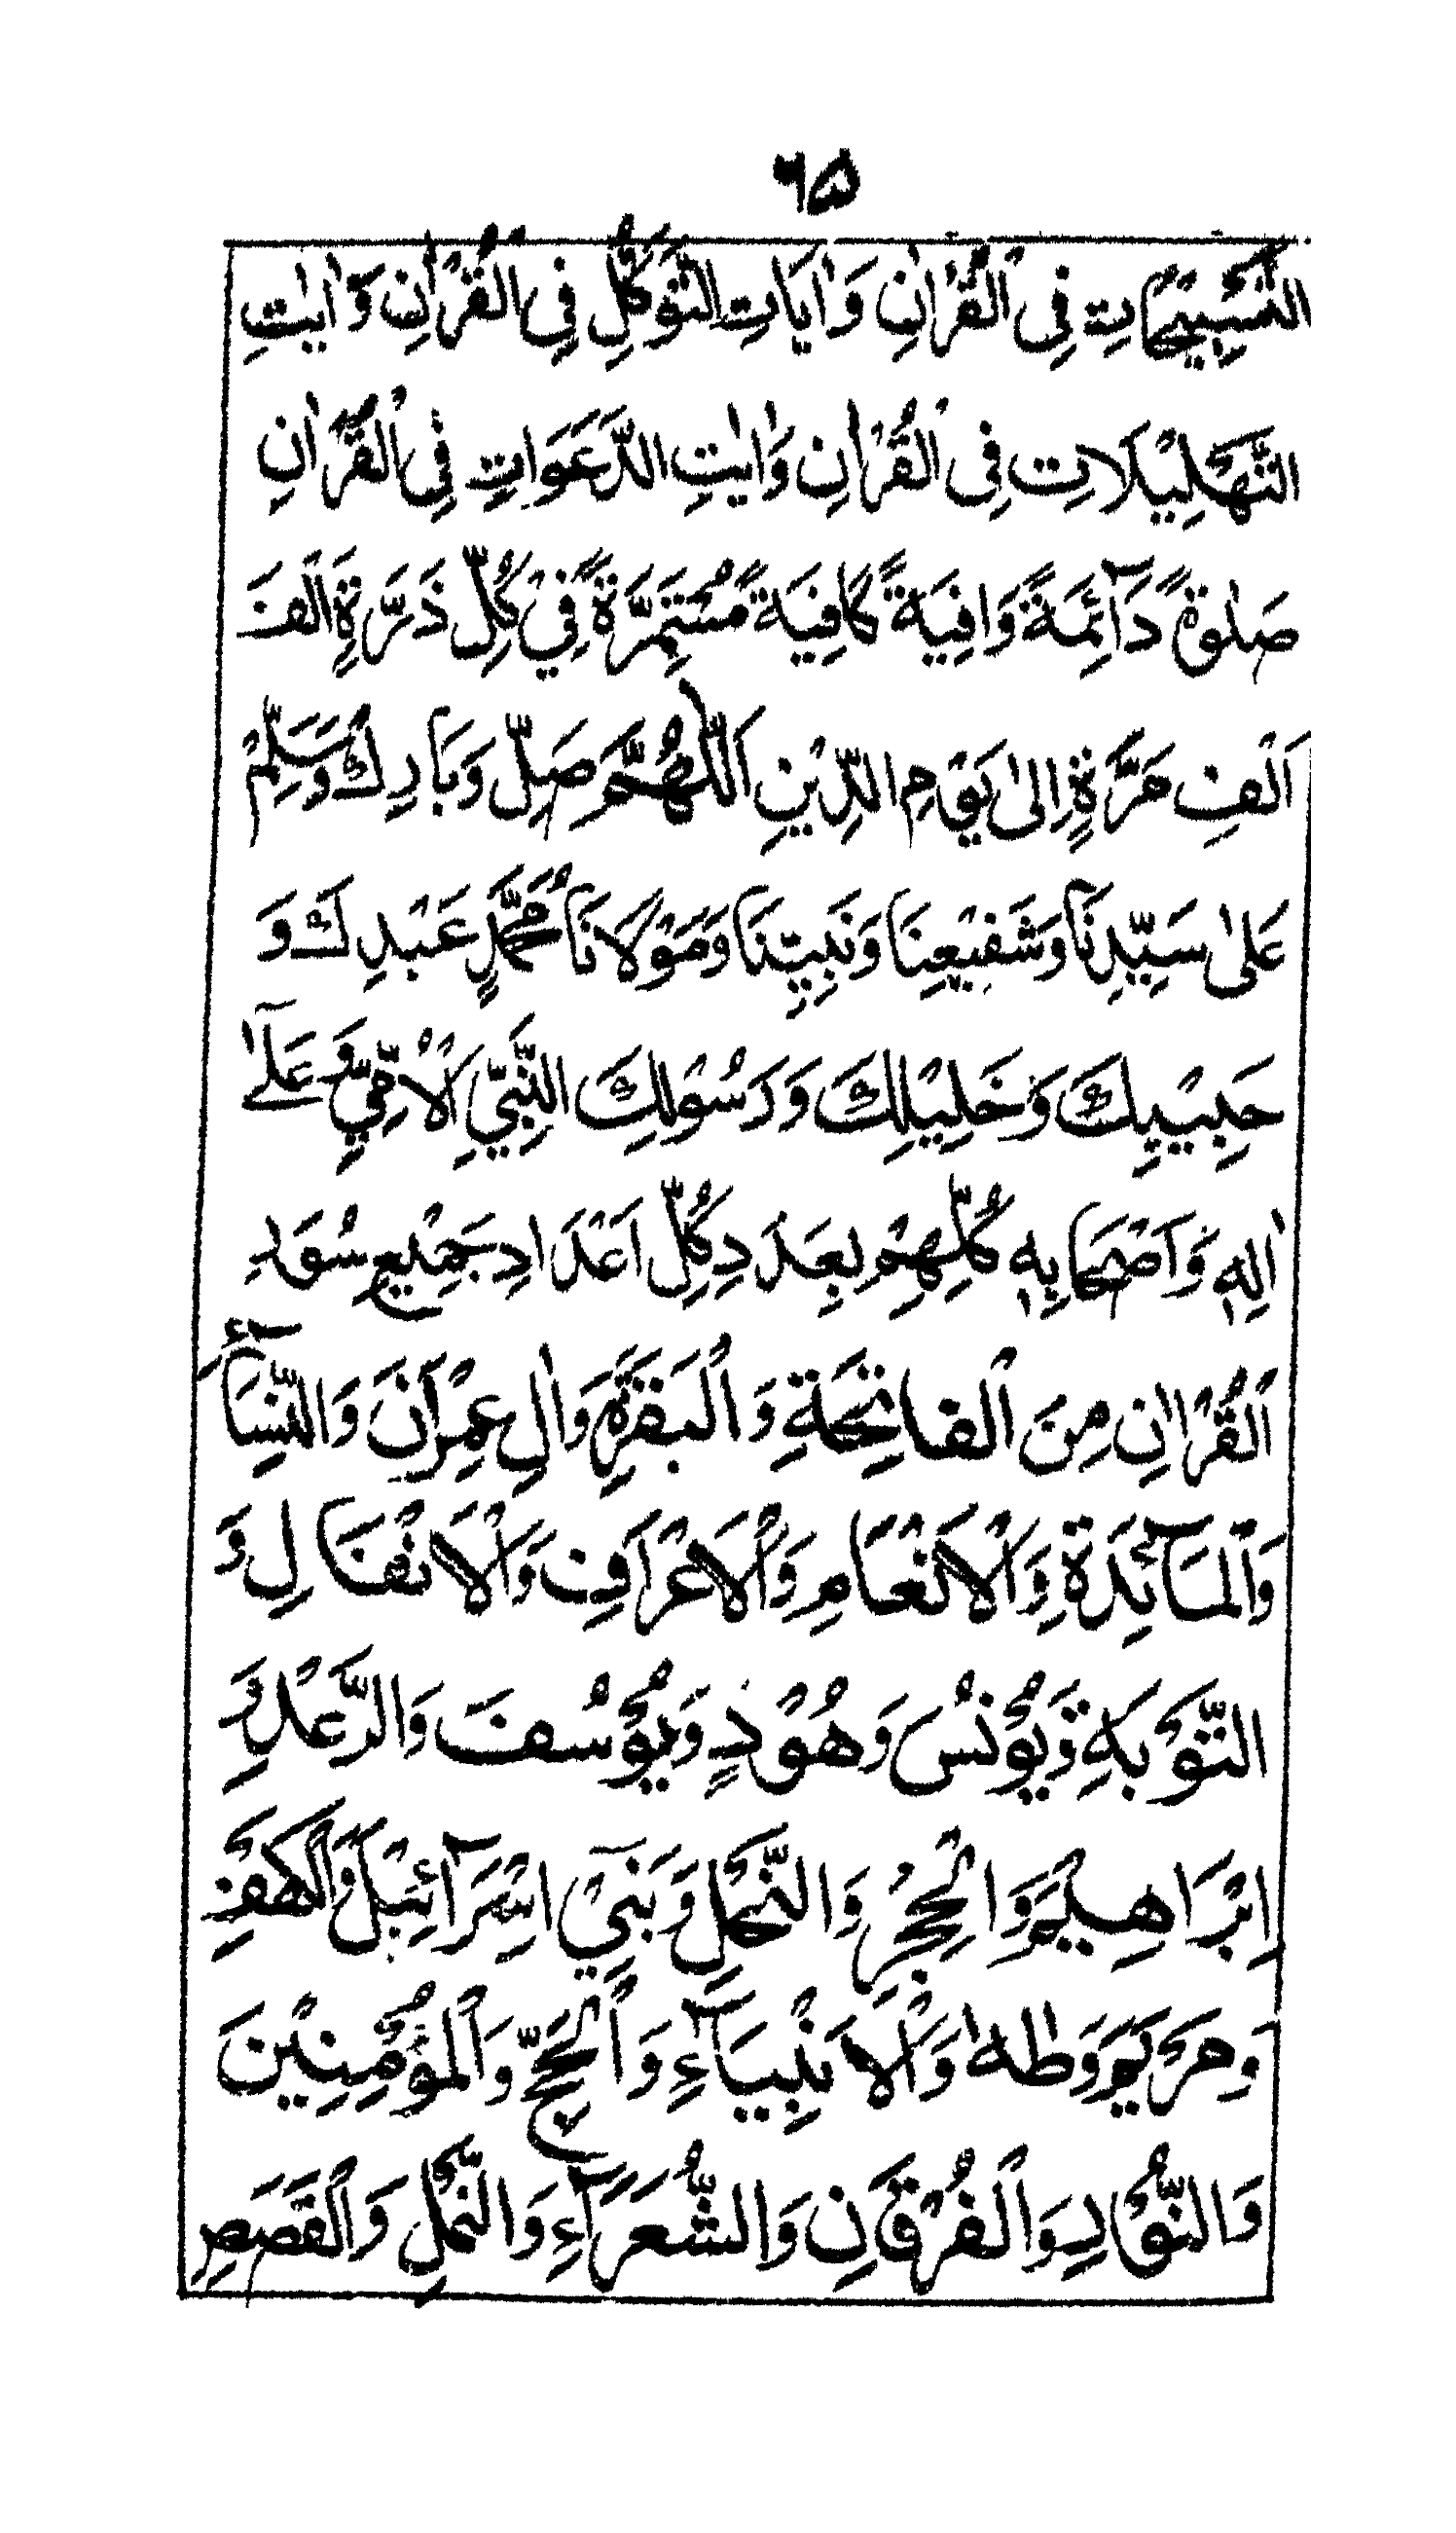 ۶۵
التَّسْبِيْحَاتِ فِى الْقُرْاٰنِ وَاٰيَاتِ التَّوَكُّلِ فِى الْقُرْاٰنِ وَاٰيٰتِ
التَّهْلِيْلَاتِ فِى الْقُرْاٰنِ وَاٰيٰتِ الدَّعَوَاتِ فِى الْقُرْاٰنِ
صَلٰوةً دَآئِمَةً وَّافِيَةً كَافِيَةً مُّسْتَمِرَّةً فِيْ كُلِّ ذَرَّةٍ اَلْفَ
اَلْفِ مَرَّةٍ اِلىٰ يَوْمِ الدِّيْنِ اَللّٰهُمَّ صَلِّ وَبَارِكْ وَسَلِّمْ
عَلىٰ سَيِّدِنَا وَشَفِيْعِنَا وَنَبِيِّنَا وَمَوْلَانَا مُحَمَّدٍ عَبْدِكَ وَ
حَبِيْبِكَ وَخَلِيْلِكَ وَرَسُوْلِكَ النَّبِيِّ الْاُمِّيِّ وَعَلىٰٓ
اٰلِهٖ وَاَصْحَابِهٖ كُلِّهِمْ بِعَدَدِ كُلِّ اَعْدَادِ جَمِيْعِ سُوَرِ
الْقُرْاٰنِ مِنَ الْفَاتِحَةِ وَالْبَقَرَةِ وَاٰلِ عِمْرَانَ وَالنِّسَآءِ
وَالْمَآئِدَةِ وَالْاَنْعَامِ وَالْاَعْرَافِ وَالْاَنْفَالِ وَ
التَّوْبَةِ وَيُوْنُسُ وَهُوْدٍ وَيُوْسُفَ وَالرَّعْدِ وَ
اِبْرَاهِيْمَ وَالْحِجْرِ وَالنَّحْلِ وَبَنِيْٓ اِسْرَآئِيْلَ وَالْكَهْفِ
وَمَرْيَمَ وَطٰهٰ وَالْاَنْبِيَآءِ وَالْحَجِّ وَالْمُؤْمِنِيْنَ
وَالنُّوْرِ وَالْفُرْقَانِ وَالشُّعَرَآءِ وَالنَّمْلِ وَالْقَصَصِ